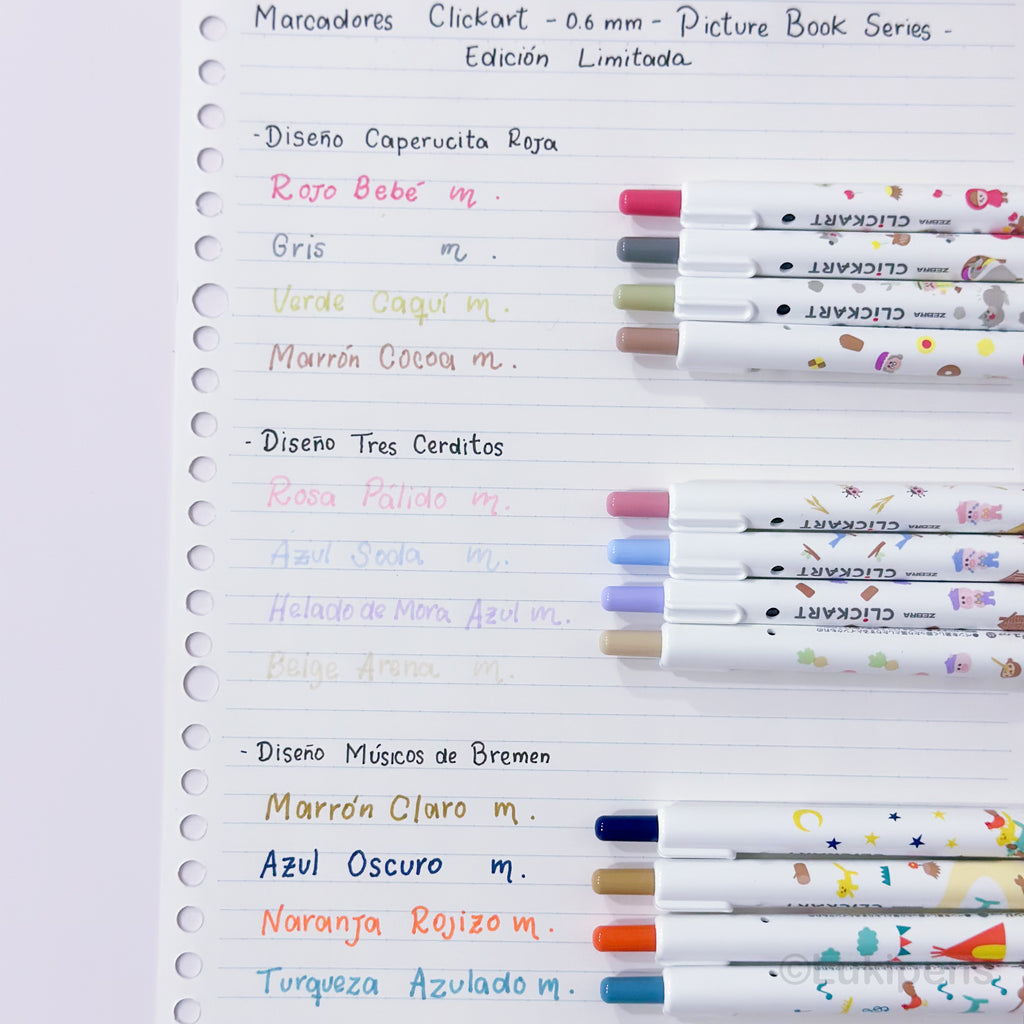 Marcadores Clickart - 0.6 mm - Picture Book Series -
Edición Limitada
- Diseño Caperucita Roja
Rojo Bebé m.
CLiCKART ZEBRA
Gris m.
CLiCKART ZEBRA
Verde Caquí m.
CLiCKART ZEBRA
Marrón Cocoa m.
- Diseño Tres Cerditos
Rosa Pálido m.
CLiCKART ZEBRA
Azul Soda m.
CLiCKART ZEBRA
Helado de Mora Azul m.
CLiCKART ZEBRA
Beige Arena m.
- Diseño Músicos de Bremen
Marrón Claro m.
Azul Oscuro m.
CLiCKART
Naranja Rojizo m.
©Lukipens
Turqueza Azulado m.